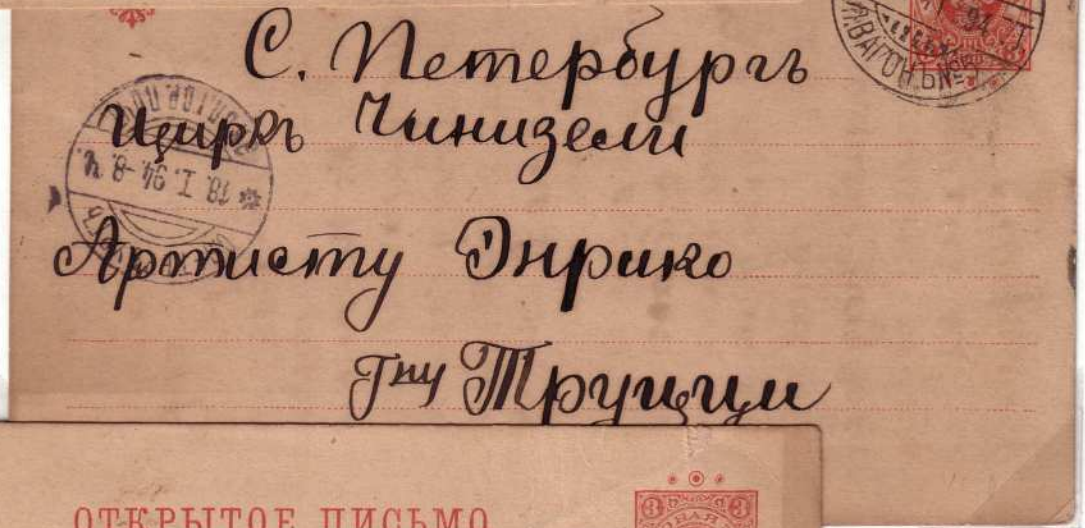 С. Петербургъ
Циркъ Чинизели
Артисту Энрико
Гну Труцци
18. I. 94 - 8 Ч.
94
ВАГОН. Б. №
ОТКРЫТОЕ ПИСЬМО
3